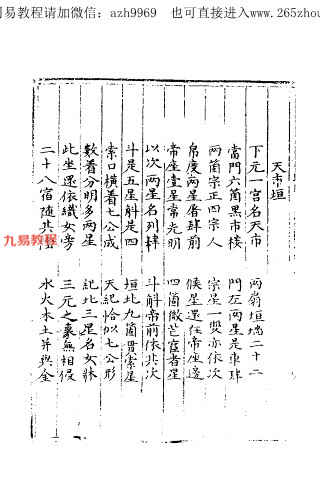 易教程请加微信：azh9969 也可直接进入www.265zhou
天市垣
下元一宮名天市 兩扇垣墻二十二
當門六箇黑市楼 門左兩星是車肆
兩箇宗正四宗人 宗星一雙亦依次
帛度兩星屠肆前 候星還在帝座邊
帝座壹星常光明 四箇微茫宦者星
以次兩星名列肆 斗斛帝前依其次
斗是五星斛是四 垣北九箇貫索星
索口橫着七公成 天紀恰似七公形
數着分明多兩星 紀北三星名女牀
此坐還依織女旁 三元之象無相侵
二十八宿隨其 水火木土并與金
九易教程